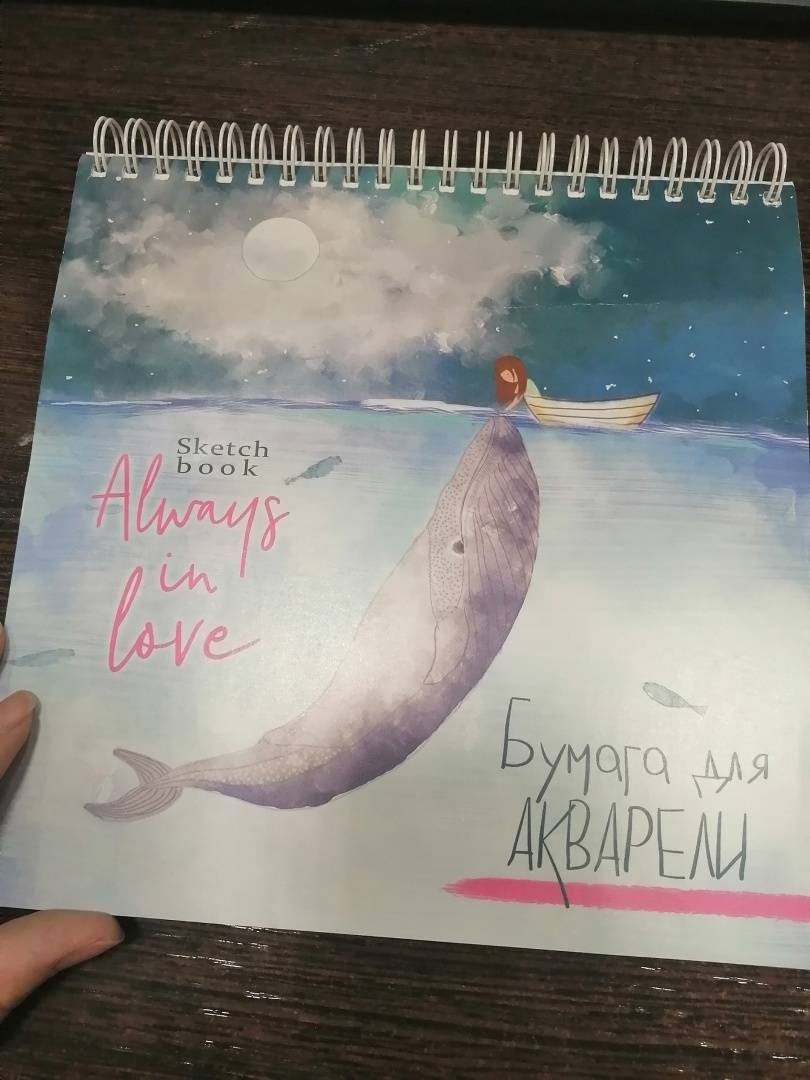 Sketch
book
Always
in
love
Бумага для
АКВАРЕЛИ